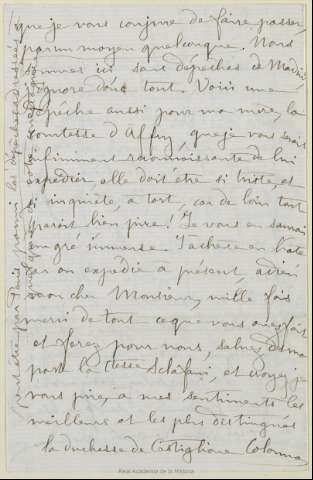 que je vous conjure de faire passer
par un moyen quelconque. Nous
sommes ici sans depêches de Madrid,
ignore donc tout. Voici une
dépêche aussi pour ma mère, la
comtesse d'Affry, que je vous serais
infiniment reconnaissante de lui
expedier, elle doit être si triste, et
si inquiète, a tort, car de loin tout
parait bien pire! Je vous en saurais
un gré immense. J'acheve en hate
car on expedie à présent, adieu
mon cher Monsieur, mille fois
merci de tout ce que vous avez fait
et ferez pour nous, saluez de ma
part la Ctesse Sclafani, et croyez je
vous prie, à mes sentiments les
meilleurs et les plus distingués
la duchesse de Castiglione Colonna
Real Academia de la Historia